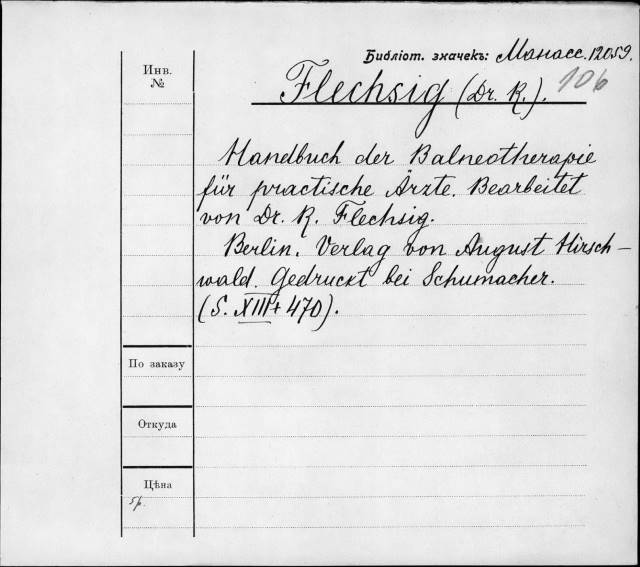 Библіот. значекъ: Манасс. 12059.
106
Инв.
№
Flechsig (Dr. R.).
Handbuch der Balneotherapie
für practische Ärzte. Bearbeitet
von Dr. R. Flechsig.
Berlin. Verlag von August Hirsch-
wald. Gedruckt bei Schumacher.
(S. XIII+470).
По заказу
Откуда
Цѣна
5р.